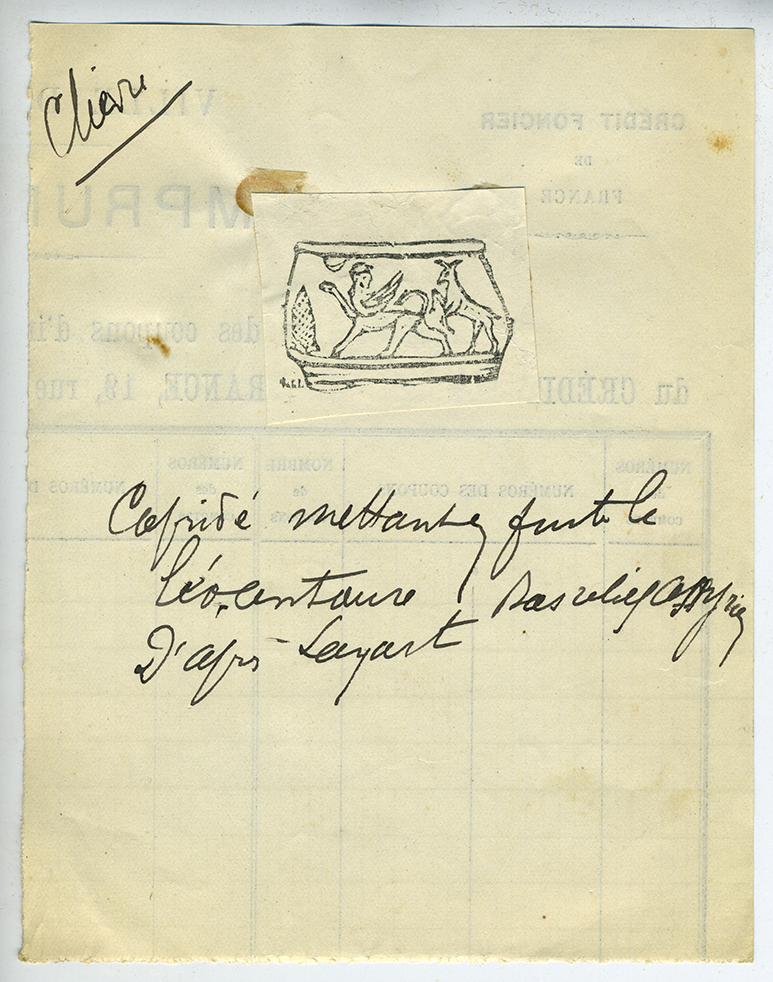 Chèvre
VILLE
CRÉDIT FONCIER
DE
FRANCE
MPRUN
des coupons d'in
du CRÉDI
RANCE, 19, rue
NUMÉROS
NUMÉROS DES COUPON
NOMBRE
de
NUMÉROS
des
NUMÉROS D
Capridé mettant en fuite le
léocentaure Bas relief assyrien
D'après Layart